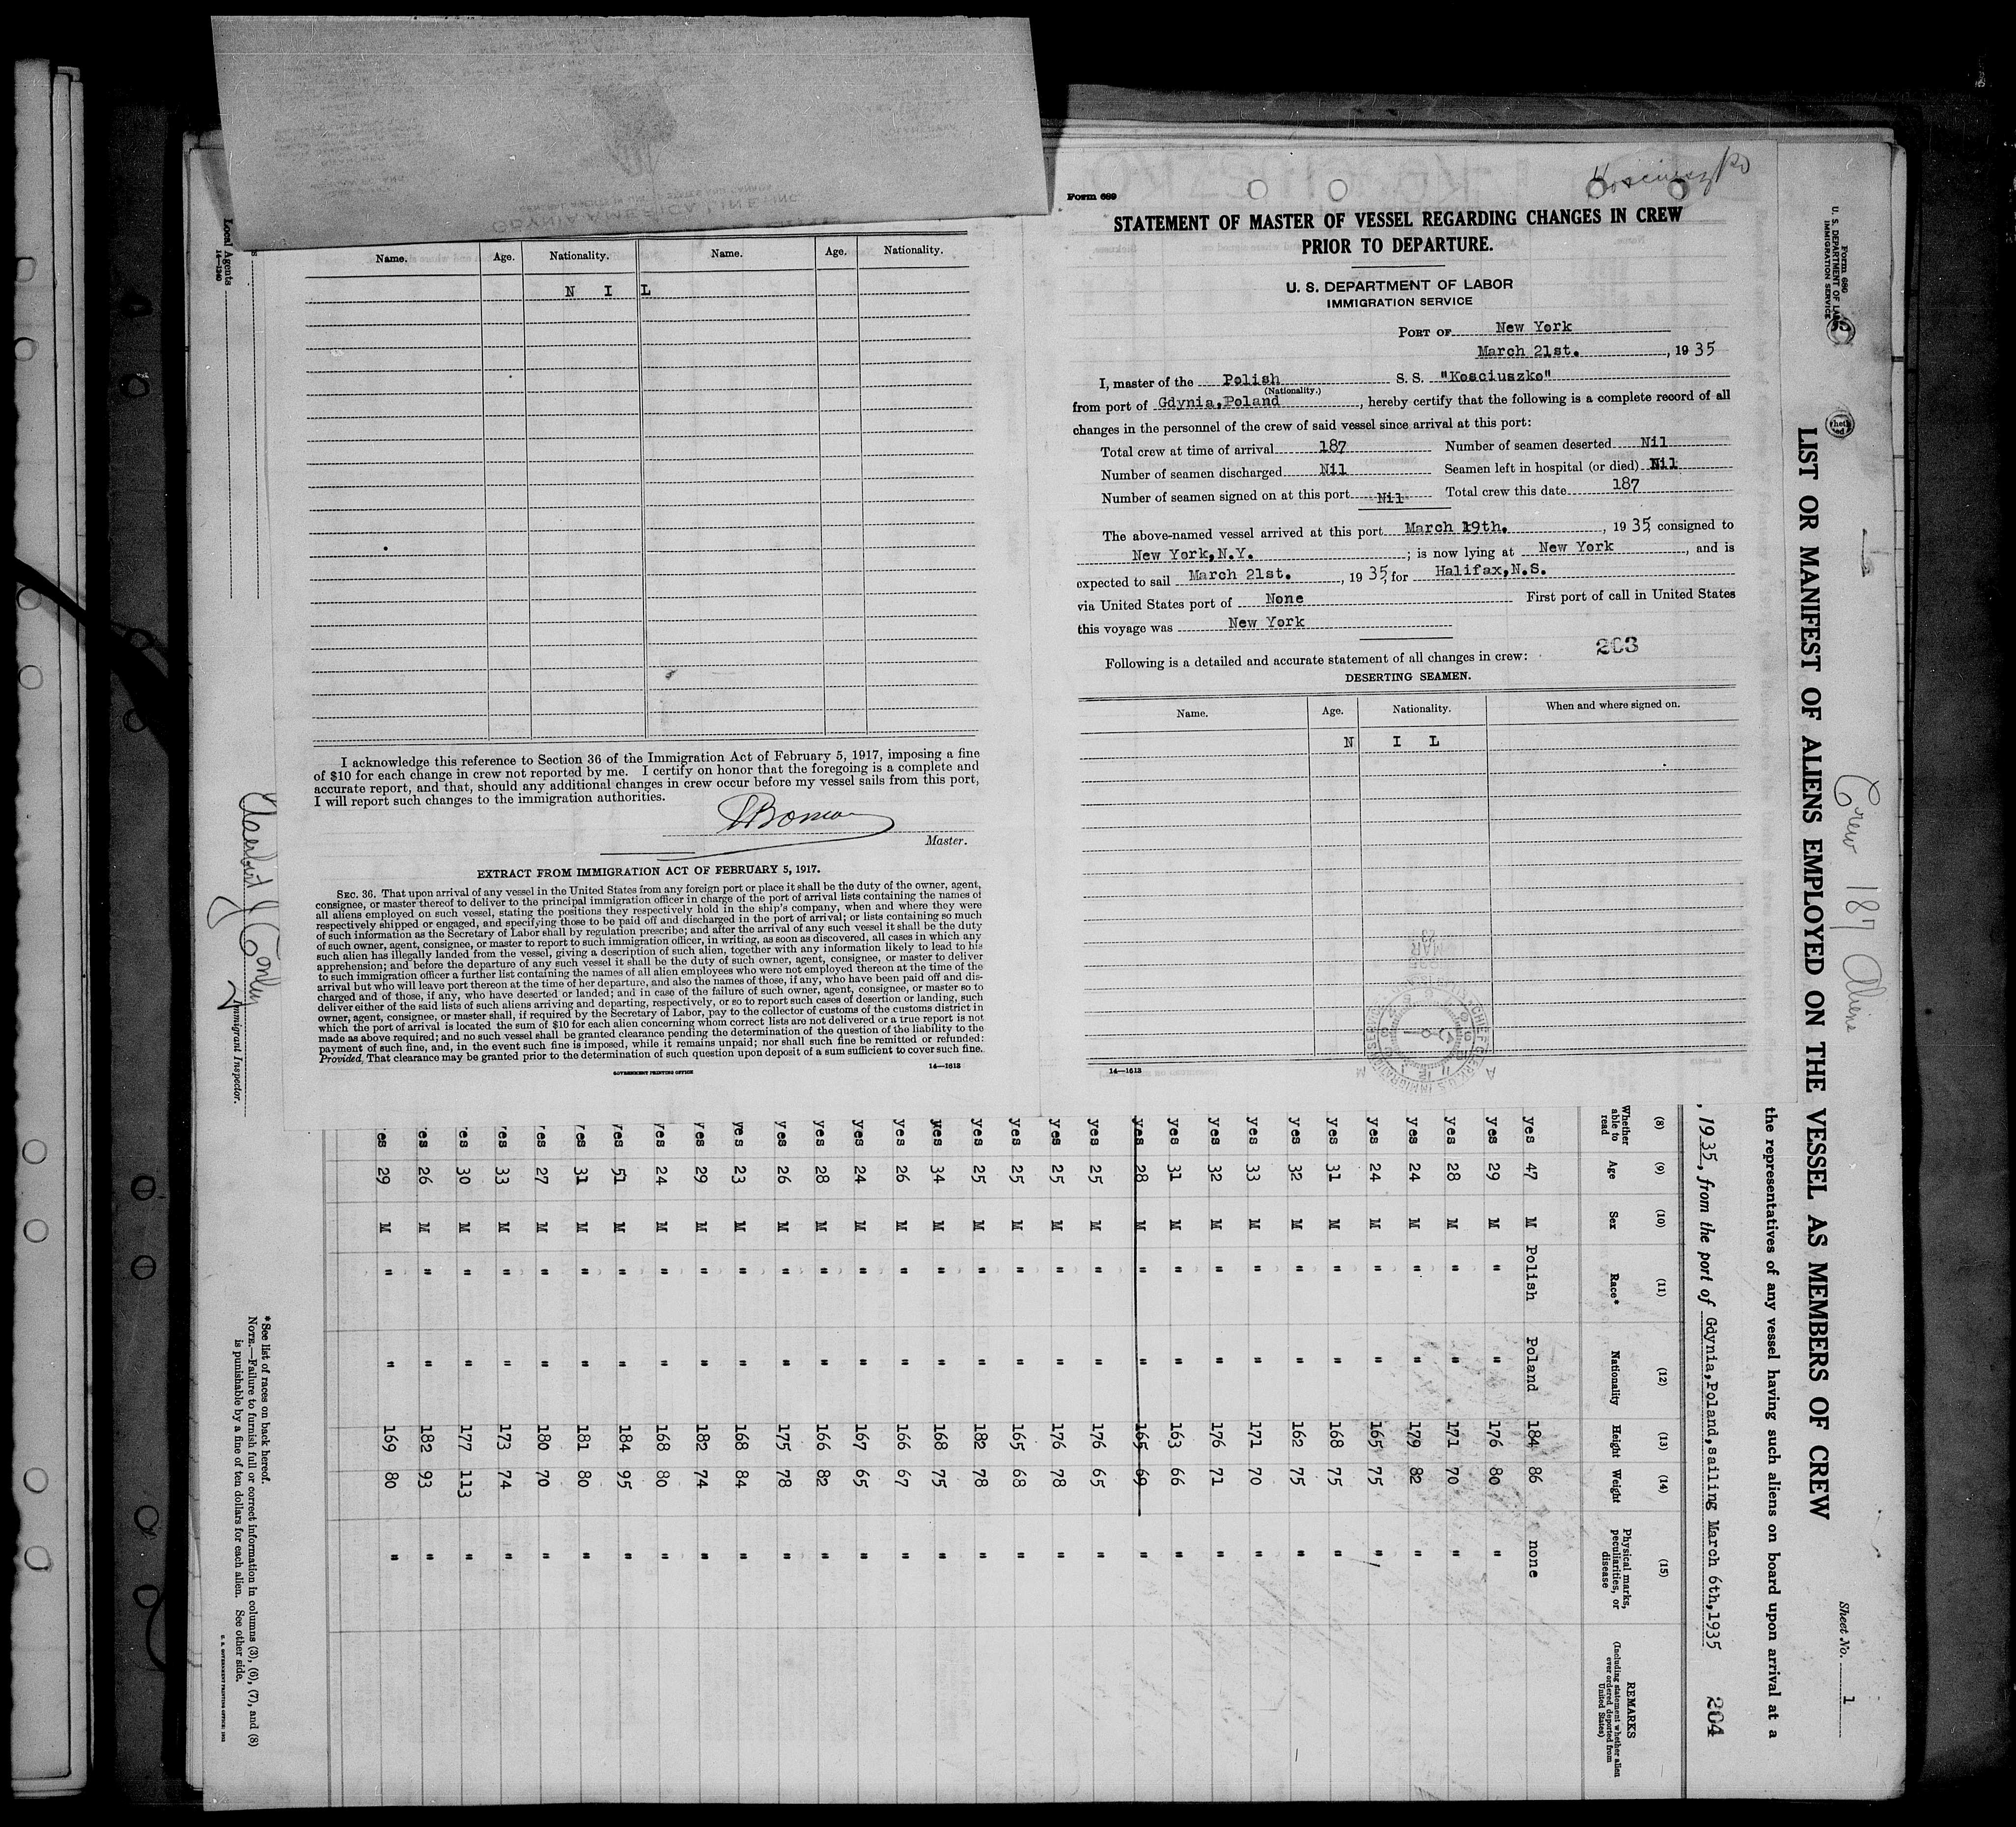 Kosciuszko
Form 689
STATEMENT OF MASTER OF VESSEL REGARDING CHANGES IN CREW
PRIOR TO DEPARTURE.
U. S. DEPARTMENT OF LABOR
IMMIGRATION SERVICE
PORT OF New York
March 21st., 1935
I, master of the Polish S. S. "Kosciuszko"
(Nationality.)
from port of Gdynia,Poland, hereby certify that the following is a complete record of all
changes in the personnel of the crew of said vessel since arrival at this port:
Total crew at time of arrival 187 Number of seamen deserted Nil
Number of seamen discharged Nil Seamen left in hospital (or died) Nil
Number of seamen signed on at this port Nil Total crew this date 187
The above-named vessel arrived at this port March 19th., 1935, consigned to
New York,N.Y.; is now lying at New York, and is
expected to sail March 21st., 1935, for Halifax,N.S.
via United States port of None First port of call in United States
this voyage was New York
203
Following is a detailed and accurate statement of all changes in crew:
DESERTING SEAMEN.
Name. Age. Nationality. When and where signed on.
N I L
14—1613
GDYNIA AMERICA LINE INC.
Name. Age. Nationality. Name. Age. Nationality.
N I L
I acknowledge this reference to Section 36 of the Immigration Act of February 5, 1917, imposing a fine
of $10 for each change in crew not reported by me. I certify on honor that the foregoing is a complete and
accurate report, and that, should any additional changes in crew occur before my vessel sails from this port,
I will report such changes to the immigration authorities.
Master.
EXTRACT FROM IMMIGRATION ACT OF FEBRUARY 5, 1917.
SEC. 36. That upon arrival of any vessel in the United States from any foreign port or place it shall be the duty of the owner, agent,
consignee, or master thereof to deliver to the principal immigration officer in charge of the port of arrival lists containing the names of
all aliens employed on such vessel, stating the positions they respectively hold in the ship's company, when and where they were
respectively shipped or engaged, and specifying those to be paid off and discharged in the port of arrival; or lists containing so much
of such information as the Secretary of Labor shall by regulation prescribe; and after the arrival of any such vessel it shall be the duty
of such owner, agent, consignee, or master to report to such immigration officer, in writing, as soon as discovered, all cases in which any
such alien has illegally landed from the vessel, giving a description of such alien, together with any information likely to lead to his
apprehension; and before the departure of any such vessel it shall be the duty of such owner, agent, consignee, or master to deliver
to such immigration officer a further list containing the names of all alien employees who were not employed thereon at the time of the
arrival but who will leave port thereon at the time of her departure, and also the names of those, if any, who have been paid off and dis-
charged and of those, if any, who have deserted or landed; and in case of the failure of such owner, agent, consignee, or master so to
deliver either of the said lists of such aliens arriving and departing, respectively, or so to report such cases of desertion or landing, such
owner, agent, consignee, or master shall, if required by the Secretary of Labor, pay to the collector of customs of the customs district in
which the port of arrival is located the sum of $10 for each alien concerning whom correct lists are not delivered or a true report is not
made as above required; and no such vessel shall be granted clearance pending the determination of the question of the liability to the
payment of such fine, and, in the event such fine is imposed, while it remains unpaid; nor shall such fine be remitted or refunded:
Provided, That clearance may be granted prior to the determination of such question upon deposit of a sum sufficient to cover such fine.
GOVERNMENT PRINTING OFFICE 14—1613
Form 680
U. S. DEPARTMENT OF LABOR
IMMIGRATION SERVICE
Crew 187 Aliens
Sheet No. 1
LIST OR MANIFEST OF ALIENS EMPLOYED ON THE VESSEL AS MEMBERS OF CREW
the representatives of any vessel having such aliens on board upon arrival at a
, 1935, from the port of Gdynia,Poland,sailing March 6th,1935
204
(8) (9) (10) (11) (12) (13) (14) (15)
Whether able to read Age Sex Race* Nationality Height Weight Physical marks, peculiarities, or disease REMARKS (Including statement whether alien ever ordered deported from United States)
yes 47 M Polish Poland 184 86 none
yes 29 M " " 176 80 "
yes 28 M " " 171 70 "
yes 24 M " " 179 82 "
yes 24 M " " 165 75 "
yes 31 M " " 168 75 "
yes 32 M " " 162 75 "
yes 33 M " " 171 70 "
yes 32 M " " 176 71 "
yes 31 M " " 163 66 "
yes 28 M " " 165 69 "
yes 25 M " " 176 65 "
yes 25 M " " 176 78 "
yes 25 M " " 165 68 "
yes 25 M " " 182 78 "
yes 34 M " " 168 75 "
yes 26 M " " 166 67 "
yes 24 M " " 167 65 "
yes 28 M " " 166 82 "
yes 26 M " " 175 78 "
yes 23 M " " 168 84 "
yes 29 M " " 182 74 "
yes 24 M " " 168 80 "
yes 51 M " " 184 95 "
yes 31 M " " 181 80 "
yes 27 M " " 180 70 "
yes 33 M " " 173 74 "
yes 30 M " " 177 113 "
yes 26 M " " 182 93 "
yes 29 M " " 169 80 "
*See list of races on back hereof.
NOTE.—Failure to furnish full or correct information in columns (3), (6), (7), and (8)
is punishable by a fine of ten dollars for each alien. See other side.
U. S. GOVERNMENT PRINTING OFFICE
Local Agents
14—1240
Immigrant Inspector.